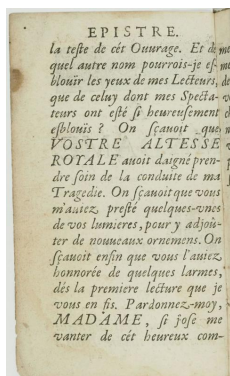 EPISTRE.
la teste de cét Ouurage. Et de
quel autre nom pourrois-je es-
blouïr les yeux de mes Lecteurs,
que de celuy dont mes Specta-
teurs ont esté si heureusement
esblouïs ? On sçauoit que
VOSTRE ALTESSE
ROYALE auoit daigné pren-
dre soin de la conduite de ma
Tragedie. On sçauoit que vous
m'auiez presté quelques-vnes
de vos lumieres, pour y adjoû-
ter de nouueaux ornemens. On
sçauoit enfin que vous l'auiez
honnorée de quelques larmes,
dés la premiere lecture que je
vous en fis. Pardonnez-moy,
MADAME, si j'ose me
vanter de cét heureux com-